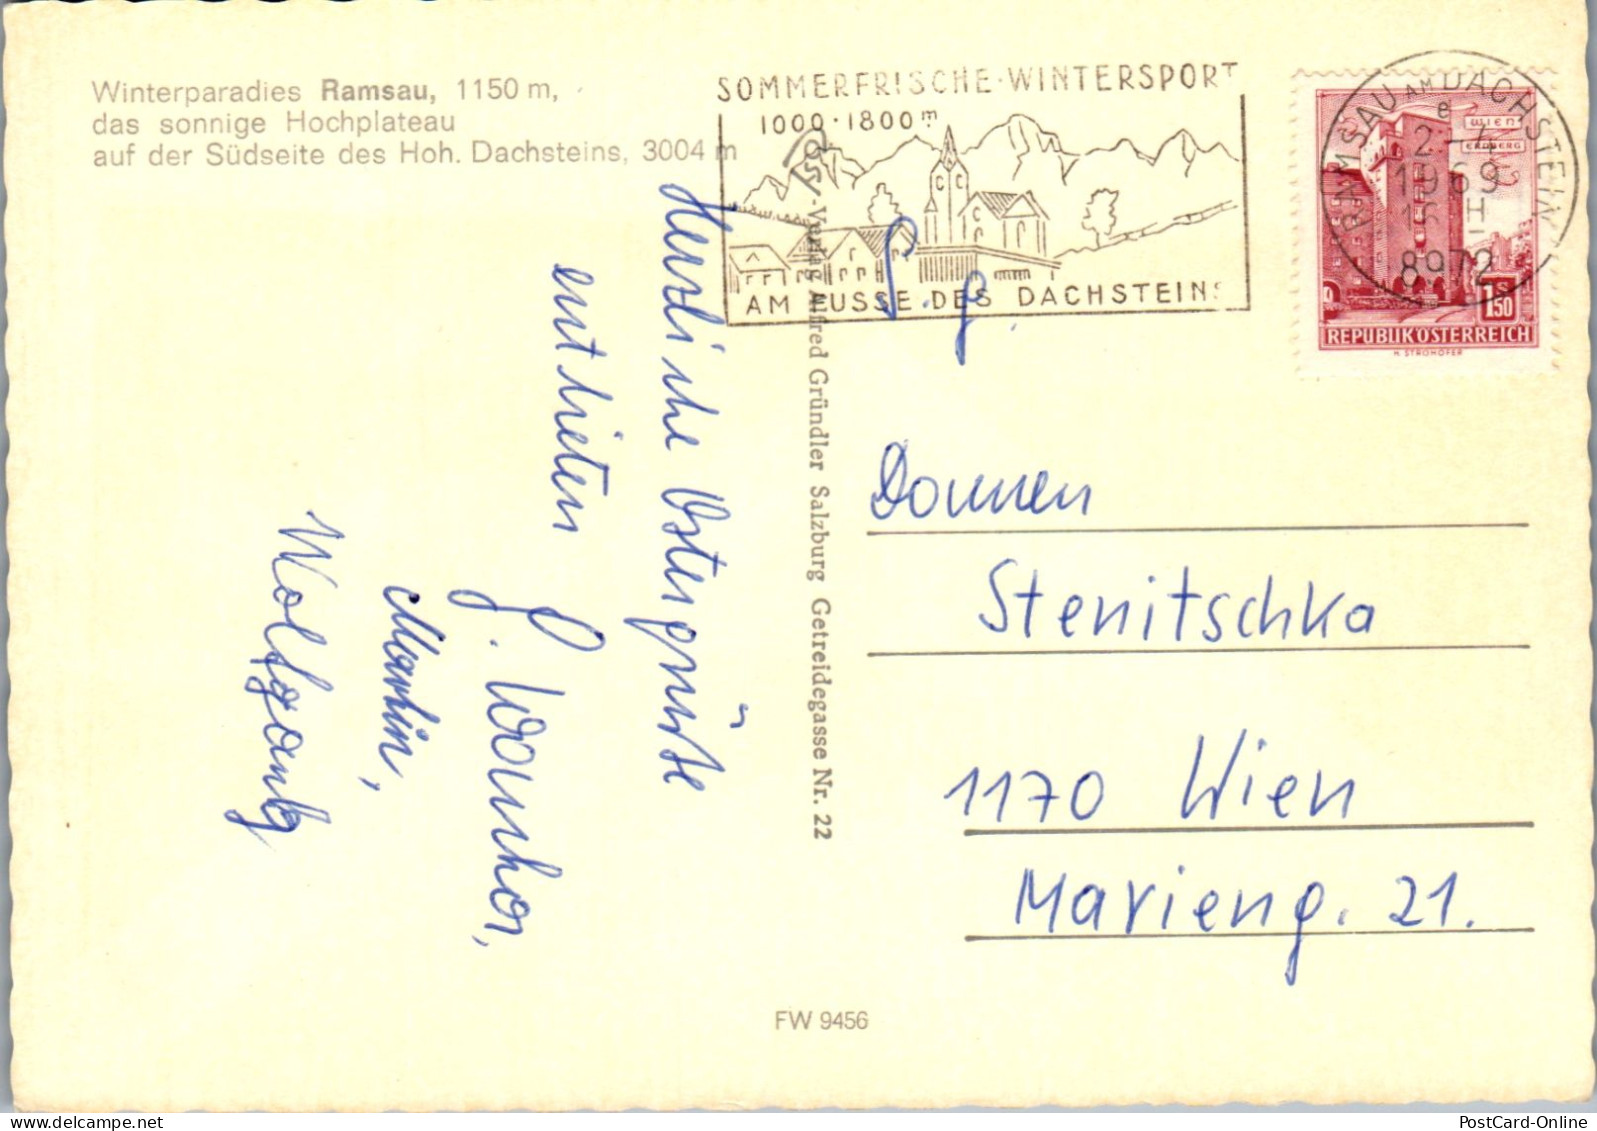 Winterparadies Ramsau, 1150 m,
das sonnige Hochplateau
auf der Südseite des Hoh. Dachsteins, 3004 m
SOMMERFRISCHE · WINTERSPORT
1000 · 1800 m
AM FUSSE DES DACHSTEINS
RAMSAU AM DACHSTEIN
1969
8972
WIEN
ERDBERG
1.50
REPUBLIK ÖSTERREICH
H. STROHOFER
Herzliche Ostergrüße
entbieten
Martin,
Wolfgang
Cosy-Verlag Alfred Gründler Salzburg Getreidegasse Nr. 22
S. g.
Stenitschka
1170 Wien
Marieng. 21.
FW 9456
PostCard-Online